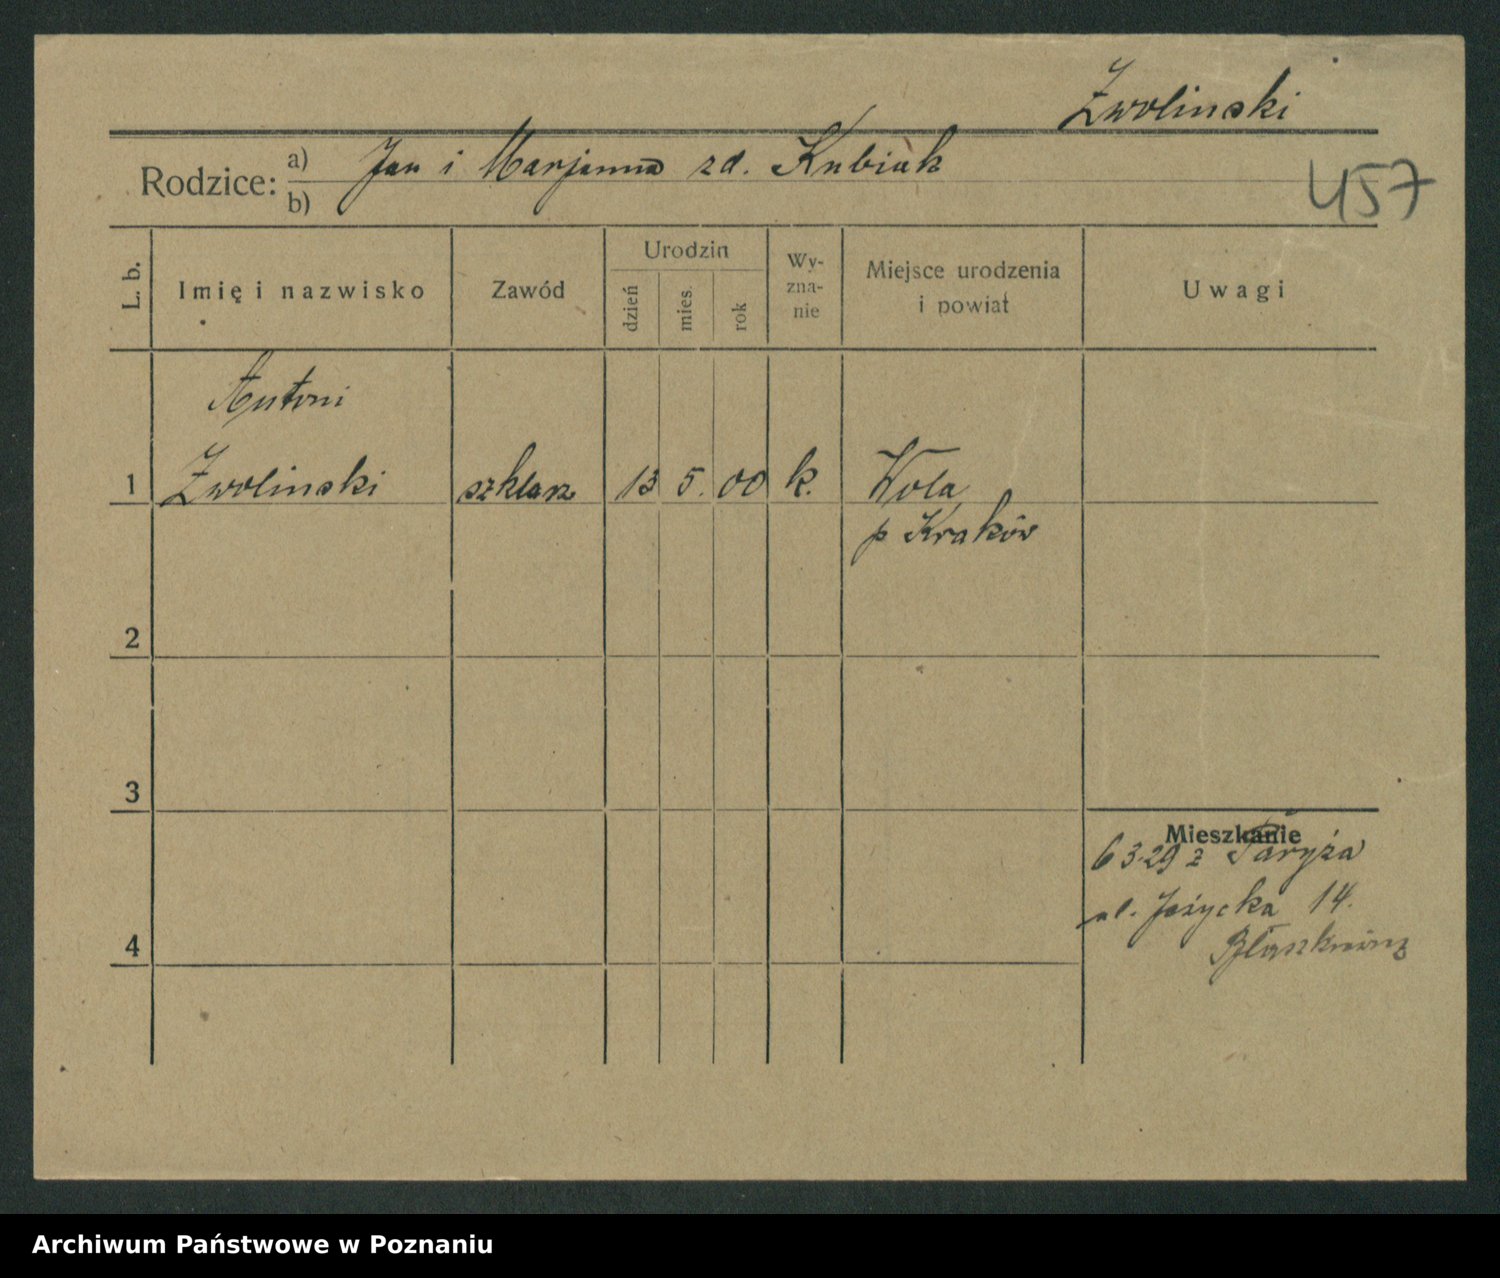 Zwolinski
Rodzice: a) Jan i Marjanna zd. Kubiak
b)
457
L. b.
Imię i nazwisko
Zawód
Urodzin
dzień
mies.
rok
Wy-
zna-
nie
Miejsce urodzenia
i powiat
Uwagi
Antoni
1 Zwolinski szklarz 13 5. 00 k. Wola
p Kraków
2
3
Mieszkanie
6 3·29 z Paryża
ul. Jeżycka 14.
4
Archiwum Państwowe w Poznaniu